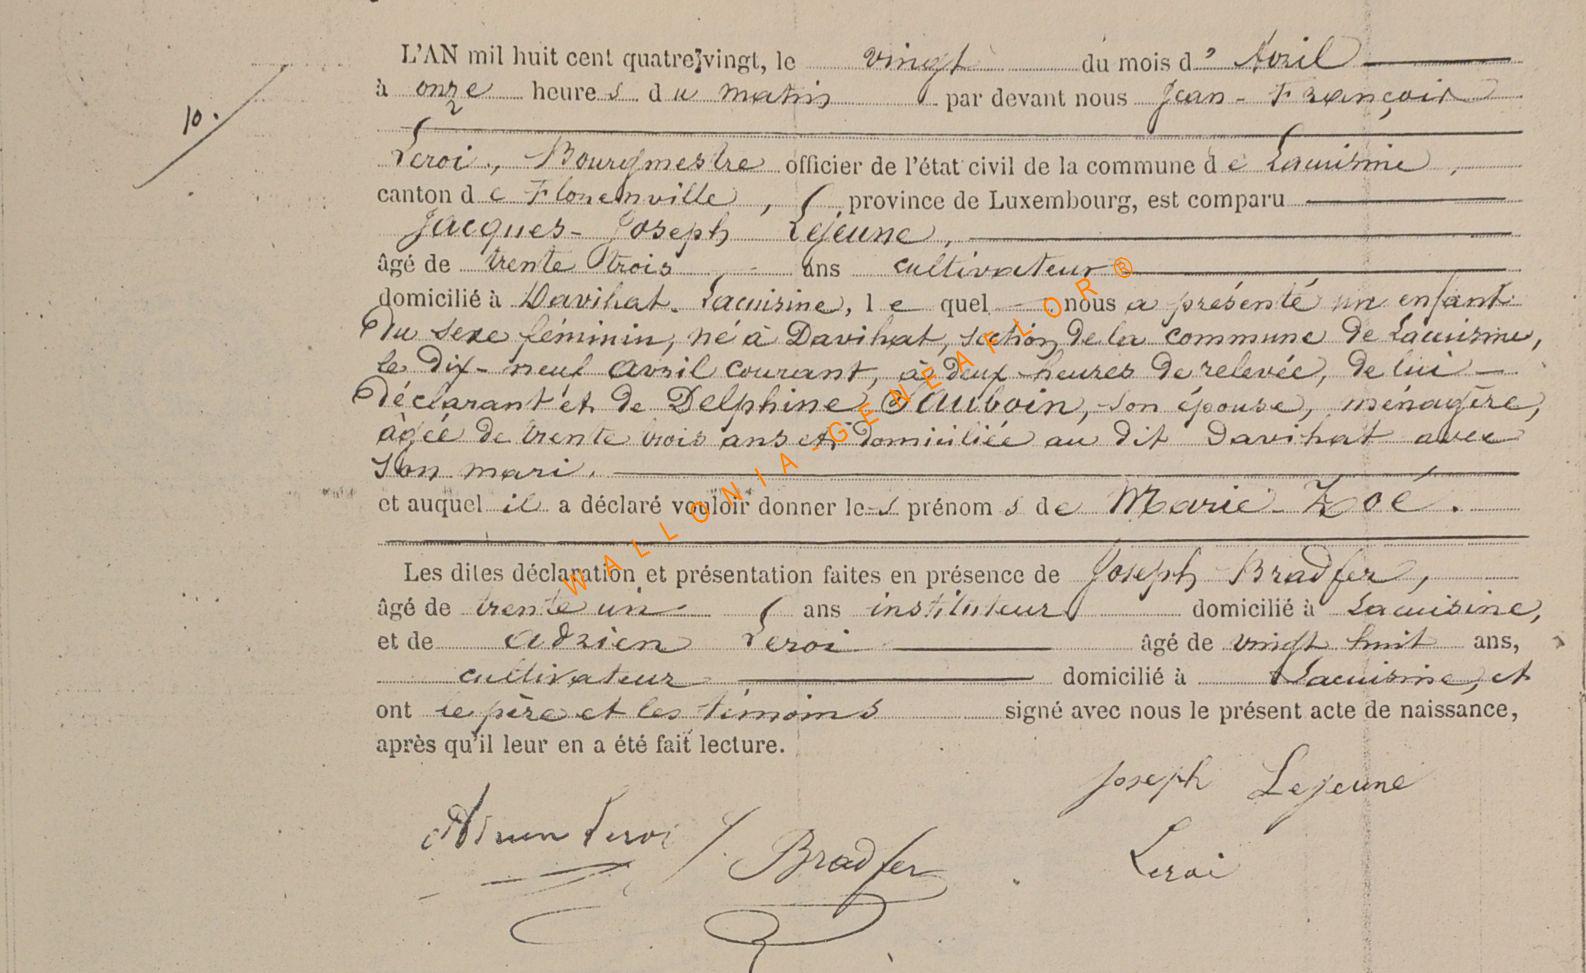 10.
L'AN mil huit cent quatre-vingt, le vingt du mois d' Avril
à onze heures du matin par devant nous Jean-François
Leroi, Bourgmestre officier de l'état civil de la commune de Lacuisine,
canton de Florenville, province de Luxembourg, est comparu
Jacques-Joseph Lejeune,
âgé de trente trois ans cultivateur
domicilié à Davihat-Lacuisine, lequel nous a présenté un enfant
du sexe féminin, né à Davihat, section de la commune de Lacuisine,
le dix-neuf avril courant, à deux heures de relevée, de lui
déclarant et de Delphine, son épouse, ménagère,
âgée de trente trois ans et domiciliée au dit Davihat avec
son mari.
et auquel il a déclaré vouloir donner les prénoms de Marie-Zoé.
Les dites déclaration et présentation faites en présence de Joseph Bradfer,
âgé de trente un ans instituteur domicilié à Lacuisine,
et de Adrien Leroi âgé de vingt huit ans,
cultivateur domicilié à Lacuisine, et
ont le père et les témoins signé avec nous le présent acte de naissance,
après qu'il leur en a été fait lecture.
Joseph Lejeune
Adrien Leroi J. Bradfer Leroi
WALLONIA-GENEAFLOR®